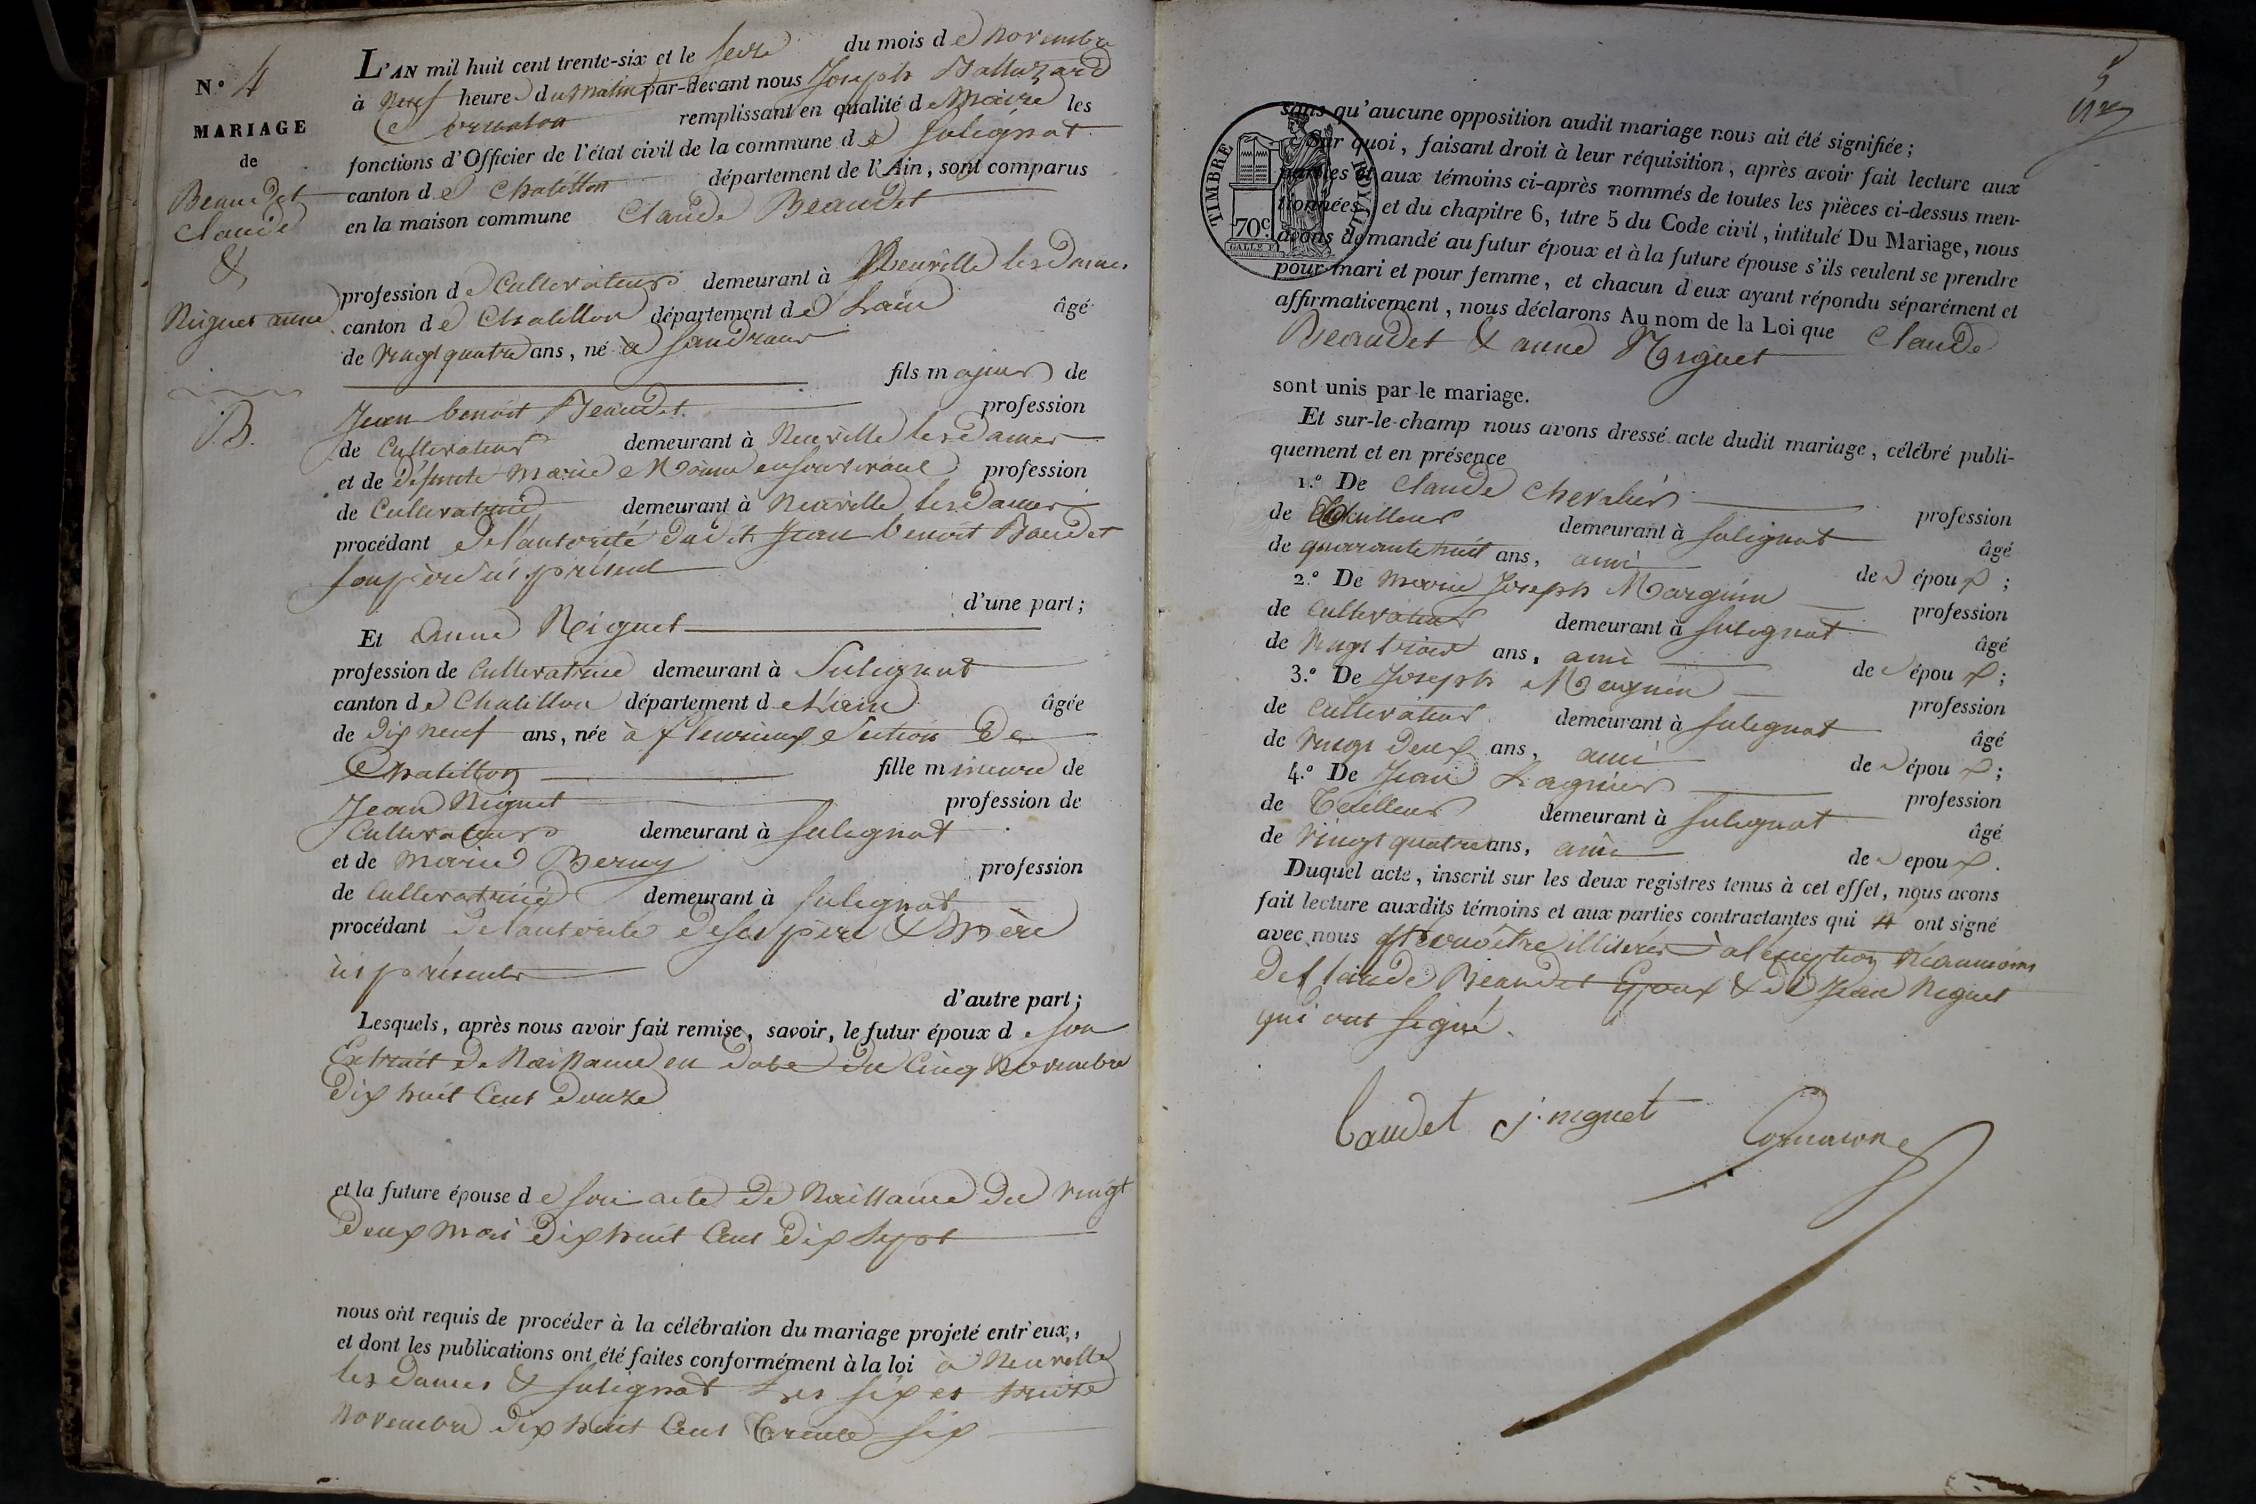 N.° 4
MARIAGE
de
Beaudet
Claude
&
Niguet anne
B.
L'AN mil huit cent trente-six et le seize du mois de Novembre
à Neuf heures du Matin par-devant nous Joseph
remplissant en qualité de Maire les
fonctions d'Officier de l'état civil de la commune de Sulignat
canton de Chatillon département de l'Ain, sont comparus
en la maison commune Claude Beaudet
profession de Cultivateur demeurant à Neuville les Dames
canton de Chatillon département de Lain âgé
de vingt quatre ans, né à Sandrans
fils majeur de
Jean benoit Beaudet profession
de Cultivateur demeurant à Neuville les Dames
et de défunte Marie profession
de Cultivatrice demeurant à Neuville les Dames
procédant de l'autorité dudit Jean benoit Baudet
son père ici présent
d'une part;
Et Anne Niguet
profession de Cultivatrice demeurant à Sulignat
canton de Chatillon département de Lain âgée
de dix neuf ans, née à fleurieux Section de
Chatillon fille mineure de
Jean Niguet profession de
Cultivateur demeurant à Sulignat
et de Marie profession
de Cultivatrice demeurant à Sulignat
procédant de l'autorité de ses père & mère
ici présents
d'autre part;
Lesquels, après nous avoir fait remise, savoir, le futur époux de son
Extrait de Naissance en date du Cinq Novembre
dix huit Cent douze
et la future épouse de son acte de Naissance du vingt
deux mai dix huit Cent dix sept
nous ont requis de procéder à la célébration du mariage projeté entr'eux,
et dont les publications ont été faites conformément à la loi à Neuville
les Dames & Sulignat Les six et treize
Novembre dix huit Cent Trente six
5
sans qu'aucune opposition audit mariage nous ait été signifiée;
Sur quoi, faisant droit à leur réquisition, après avoir fait lecture aux
parties et aux témoins ci-après nommés de toutes les pièces ci-dessus men-
tionnées, et du chapitre 6, titre 5 du Code civil, intitulé Du Mariage, nous
avons demandé au futur époux et à la future épouse s'ils veulent se prendre
pour mari et pour femme, et chacun d'eux ayant répondu séparément et
affirmativement, nous déclarons Au nom de la Loi que Claude
Beaudet & anne Niguet
sont unis par le mariage.
TIMBRE ROYAL
70c.
Et sur-le-champ nous avons dressé acte dudit mariage, célébré publi-
quement et en présence
1.° De Claude Chevalier profession
de demeurant à Sulignat âgé
de quarante huit ans, ami de époux;
2.° De Marie Joseph Marguin profession
de Cultivateur demeurant à Sulignat âgé
de vingt trois ans, ami de époux;
3.° De Joseph profession
de Cultivateur demeurant à Sulignat âgé
de vingt deux ans, ami de époux;
4.° De Jean profession
de Tailleur demeurant à Sulignat âgé
de vingt quatre ans, ami de epoux.
Duquel acte, inscrit sur les deux registres tenus à cet effet, nous avons
fait lecture auxdits témoins et aux parties contractantes qui ont signé
avec nous illiterés à l'éxception Néanmoins
de Claude Beaudet Epoux & de Jean Niguet
qui ont signé.
baudet j. niguet